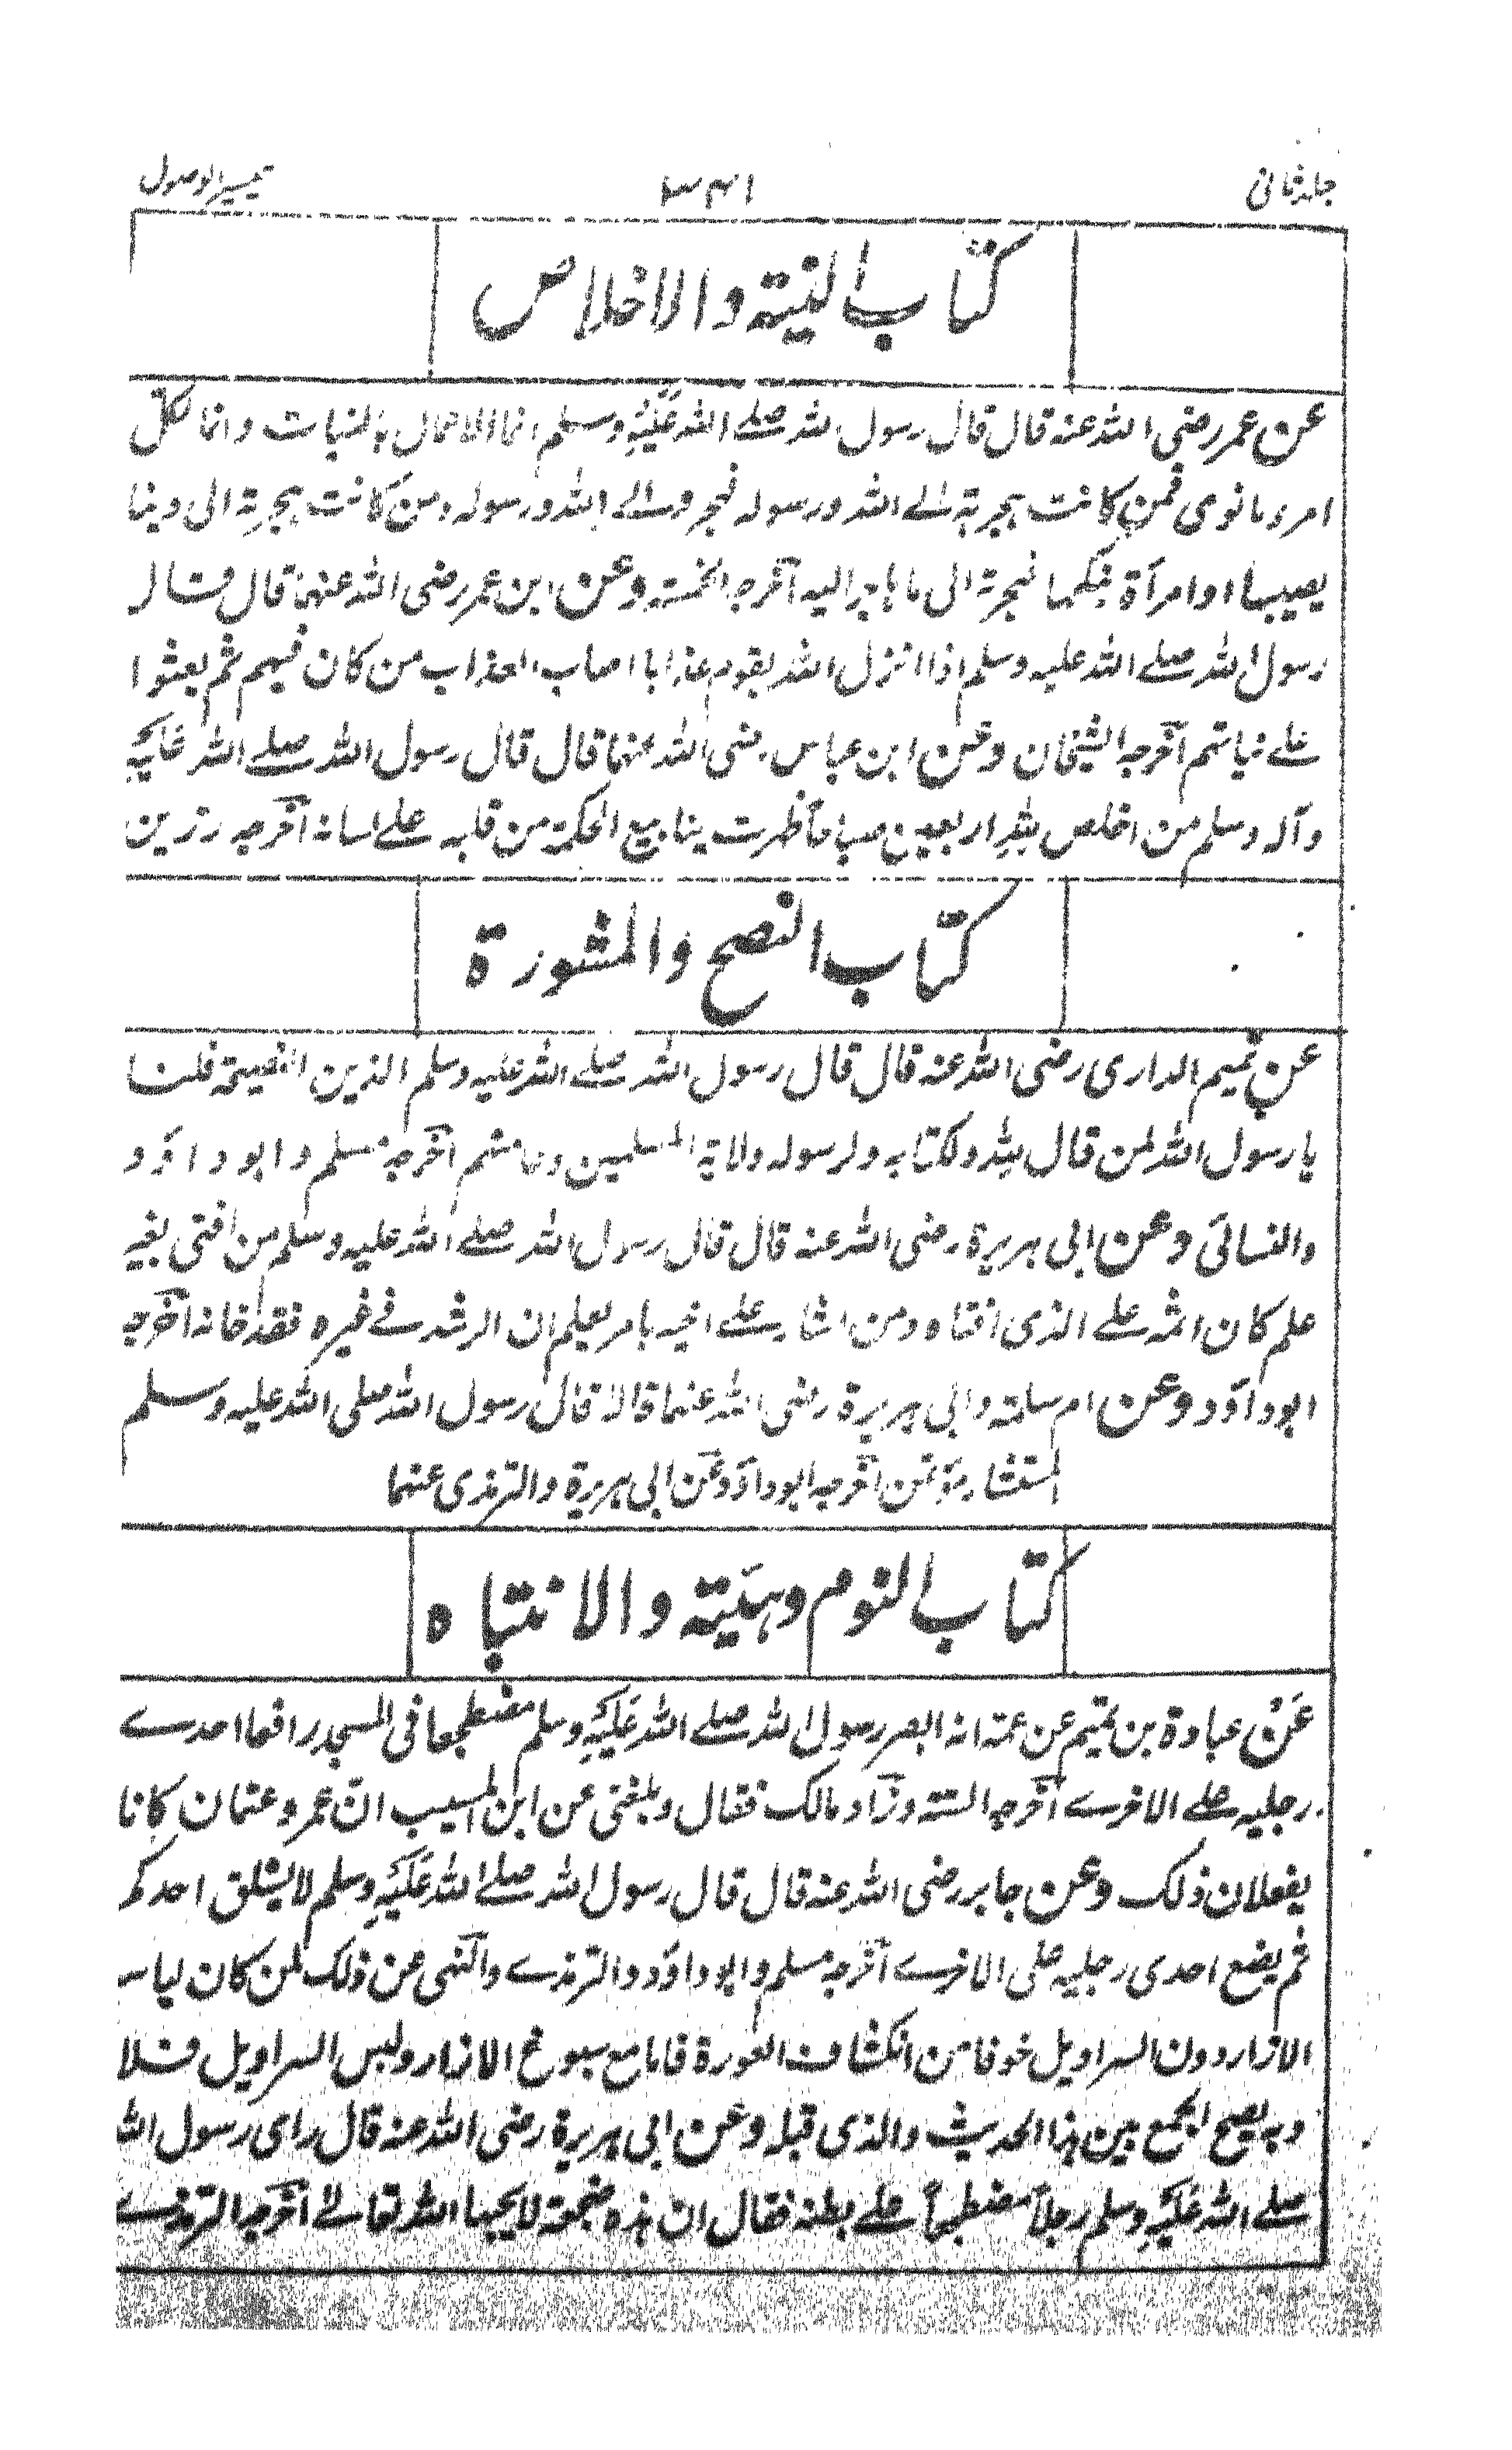 جلد ثانی ۳۴۱ تیسیر الوصول
کتاب النیة والاخلاص
عن عمر رضی الله عنه قال قال رسول لله صلے الله علیه وسلم انما الاعمال بالنیات وانما لکل
امرء ما نوی فمن کانت ہجرته الے الله ورسوله فہجرته الے الله ورسوله ومن کانت ہجرته الی دنیا
یصیبها او امرأة ینکحها فہجرته الی ما ہاجر الیه اخرجه الخمسة وعن ابن عمر رضی الله عنہما قال قال
رسول الله صلے الله علیه وسلم اذا انزل الله بقوم عذابا اصاب العذاب من کان فیہم ثم بعثوا
علے نیاتہم اخرجه الشیخان وعن ابن عباس رضی الله عنہما قال قال رسول الله صلے الله علیه
وآله وسلم من اخلص لله اربعین صباحا ظہرت ینابیع الحکمة من قلبه علے لسانه اخرجه رزین
کتاب النصح والمشورة
عن تمیم الداری رضی الله عنه قال قال رسول الله صلے الله علیه وسلم الدین النصیحة قلنا
یا رسول الله لمن قال لله ولکتابه ولرسوله ولائمة المسلمین وعامتہم اخرجه مسلم وابو داؤد
والنسائی وعن ابی ہریرة رضی الله عنه قال قال رسول الله صلے الله علیه وسلم من افتی بغیر
علم کان اثمه علے الذی افتاه ومن اشار علے اخیه بامر یعلم ان الرشد فے غیره فقد خانه اخرجه
ابو داؤد وعن ام سلمة وابی ہریرة رضی الله عنہما قالا قال رسول الله صلی الله علیه وسلم
المستشار مؤتمن اخرجه ابو داؤد عن ابی ہریرة والترمذی عنہما
کتاب النوم وہیئته والانتباه
عن عبادة بن تمیم عن عمه انه ابصر رسول الله صلے الله علیه وسلم مضطجعا فی المسجد رافعا احدے
رجلیه علے الاخرے اخرجه الستة وزاد مالک فقال وبلغنی عن ابن المسیب ان عمر وعثمان کانا
یفعلان ذلک وعن جابر رضی الله عنه قال قال رسول الله صلے الله علیه وسلم لا یستلق احدکم
ثم یضع احدی رجلیه علی الاخرے اخرجه مسلم وابو داؤد والترمذے والنہی عن ذلک لمن کان لباس
الازار دون السراویل خوفا من انکشاف العورة فاما مع سبوغ الازار ولبس السراویل فلا
وبه یصح الجمع بین ہذا الحدیث والذی قبله وعن ابی ہریرة رضی الله عنه قال رای رسول الله
صلے الله علیه وسلم رجلا مضطجعا علے بطنه فقال ان ہذه ضجعة لا یحبها الله تعالے اخرجه الترمذے